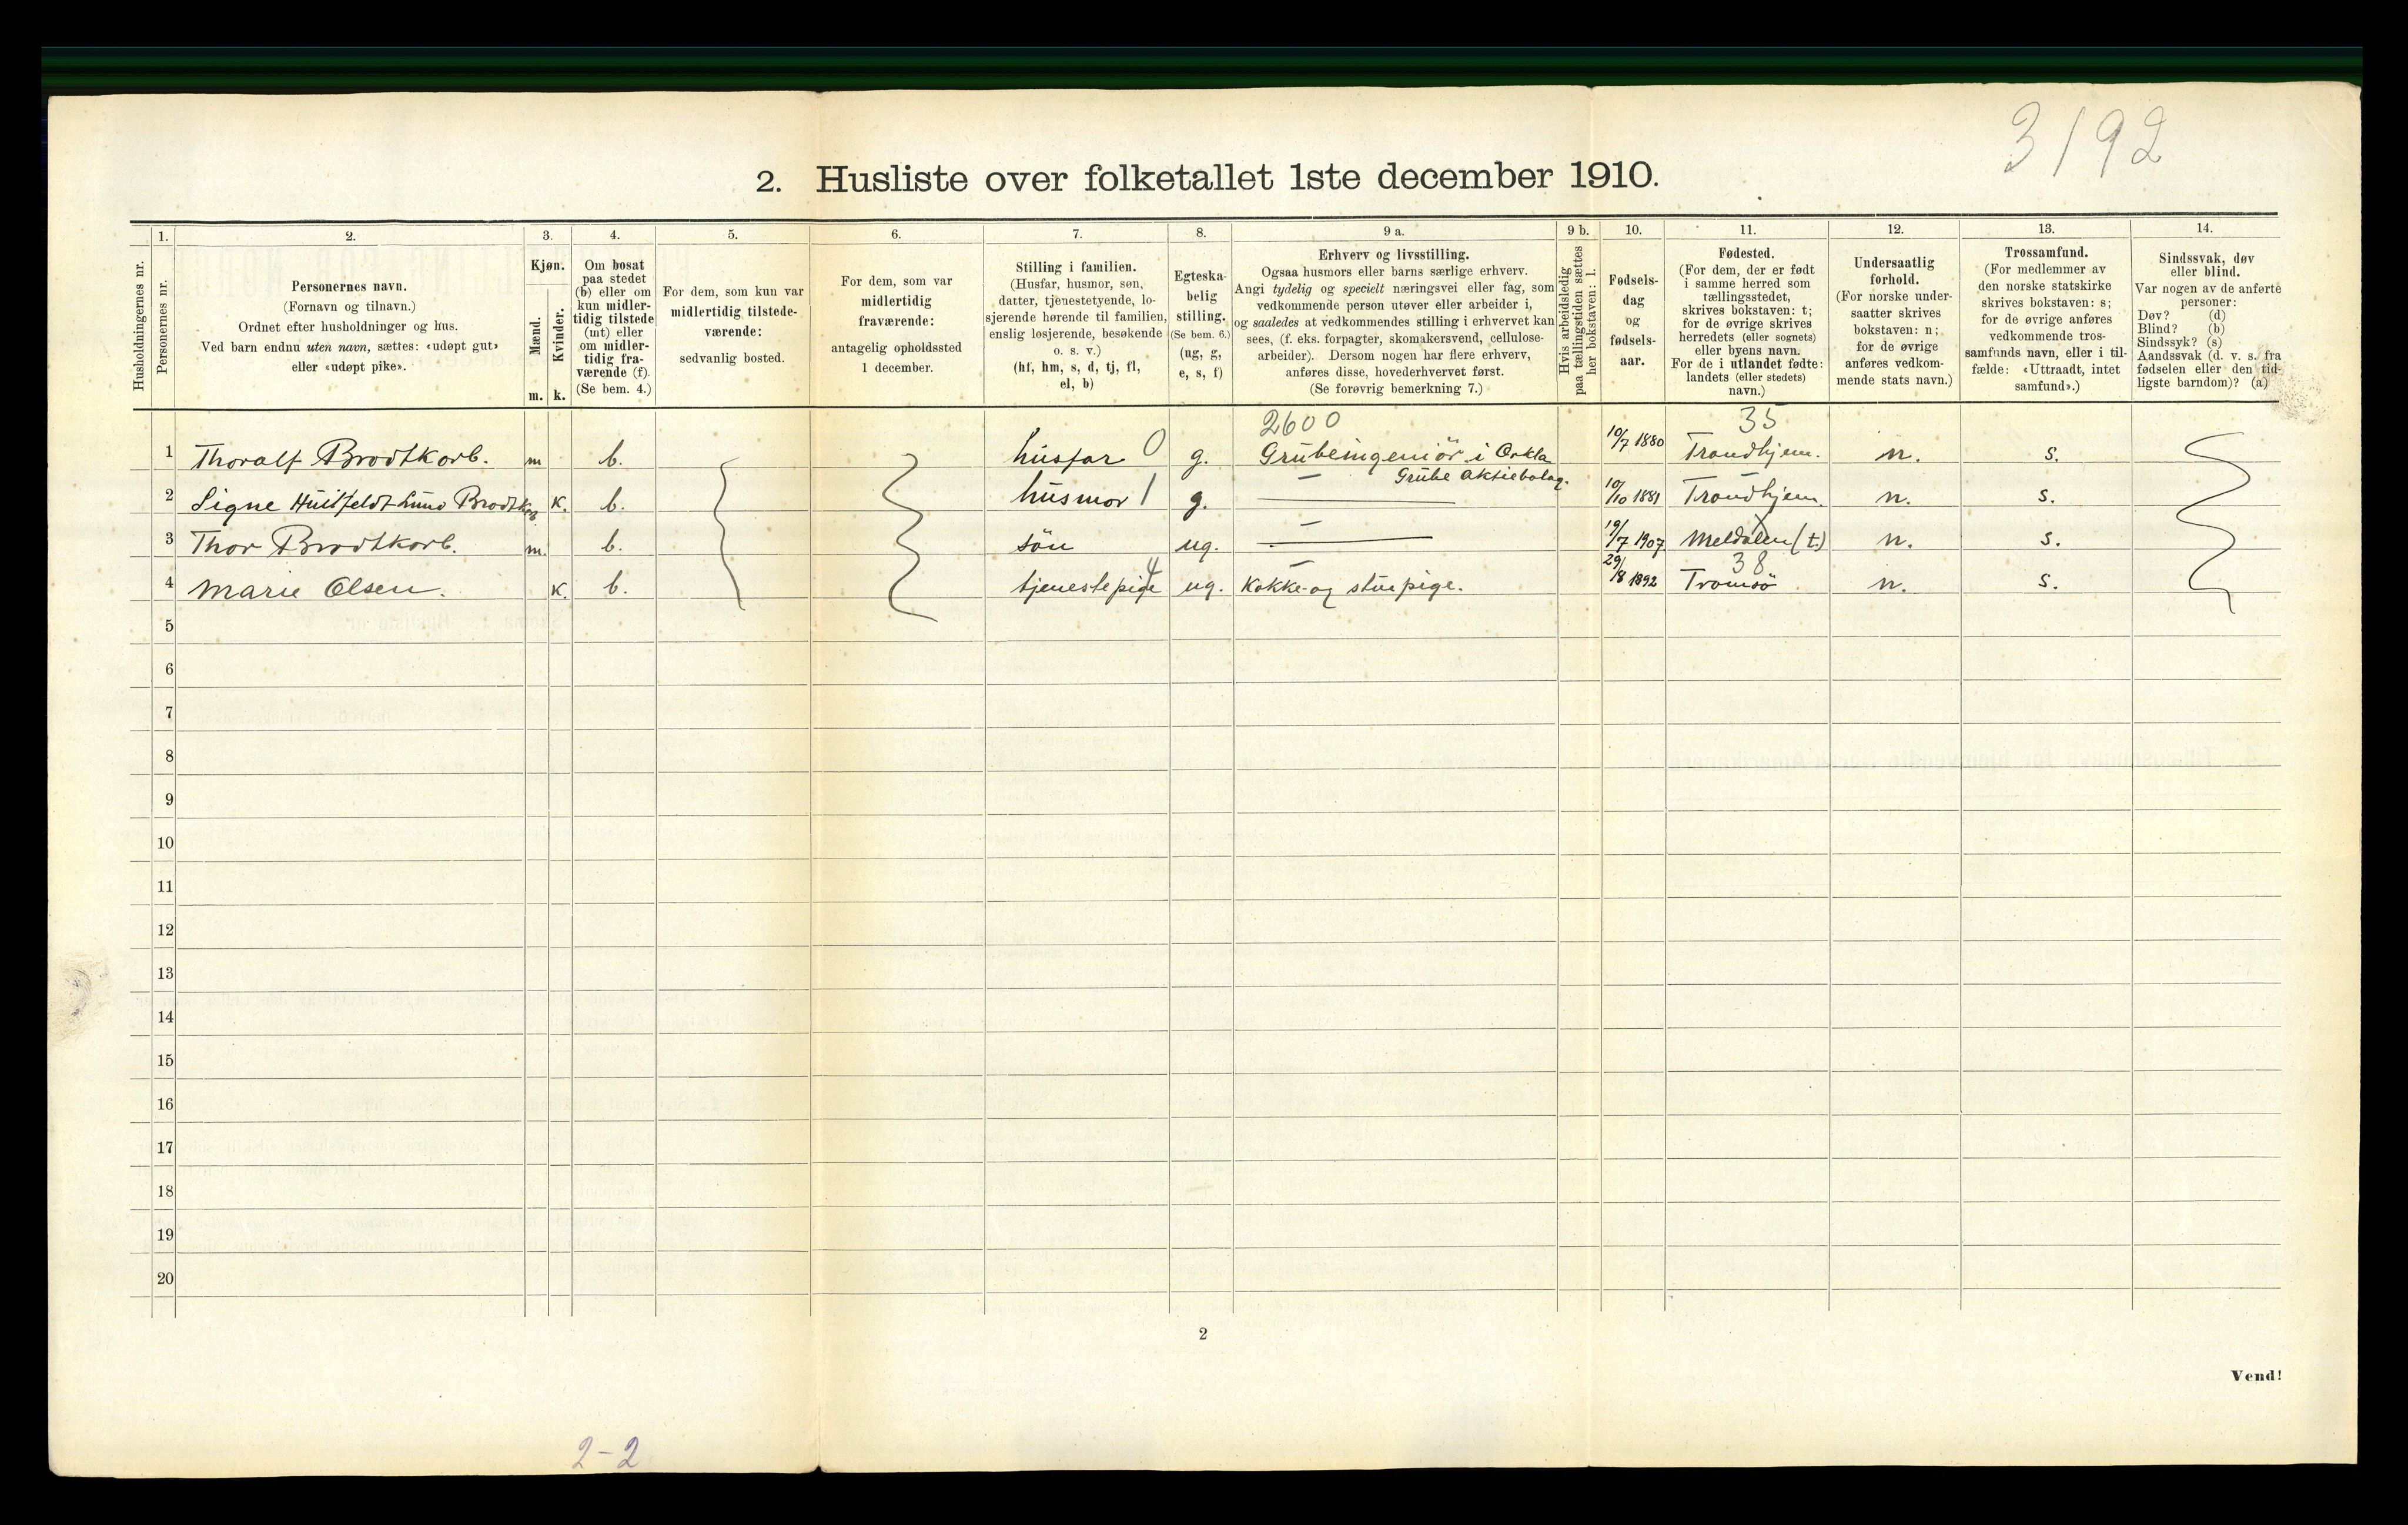 3192
2. Husliste over folketallet 1ste december 1910.
1. 2. 3. 4. 5. 6. 7. 8. 9 a. 9 b. 10. 11. 12. 13. 14.
Husholdningernes nr.
Personernes nr.
Personernes navn.
(Fornavn og tilnavn.)
Ordnet efter husholdninger og hus.
Ved barn endnu uten navn, sættes: «udøpt gut»
eller «udøpt pike».
Kjøn.
Mænd.
Kvinder.
m. k.
Om bosat
paa stedet
(b) eller om
kun midler-
tidig tilstede
(mt) eller
om midler-
tidig fra-
værende (f).
(Se bem. 4.)
For dem, som kun var
midlertidig tilstede-
værende:
sedvanlig bosted.
For dem, som var
midlertidig
fraværende:
antagelig opholdssted
1 december.
Stilling i familien.
(Husfar, husmor, søn,
datter, tjenestetyende, lo-
sjerende hørende til familien,
enslig losjerende, besøkende
o. s. v.)
(hf, hm, s, d, tj, fl,
el, b)
Egteska-
belig
stilling.
(Se bem. 6.)
(ug, g,
e, s, f)
Erhverv og livsstilling.
Ogsaa husmors eller barns særlige erhverv.
Angi tydelig og specielt næringsvei eller fag, som
vedkommende person utøver eller arbeider i,
og saaledes at vedkommendes stilling i erhvervet kan
sees, (f. eks. forpagter, skomakersvend, cellulose-
arbeider). Dersom nogen har flere erhverv,
anføres disse, hovederhvervet først.
(Se forøvrig bemerkning 7.)
Hvis arbeidsledig
paa tællingstiden sættes
her bokstaven: l.
Fødsels-
dag
og
fødsels-
aar.
Fødested.
(For dem, der er født
i samme herred som
tællingsstedet,
skrives bokstaven: t;
for de øvrige skrives
herredets (eller sognets)
eller byens navn.
For de i utlandet fødte:
landets (eller stedets)
navn.)
Undersaatlig
forhold.
(For norske under-
saatter skrives
bokstaven: n;
for de øvrige
anføres vedkom-
mende stats navn.)
Trossamfund.
(For medlemmer av
den norske statskirke
skrives bokstaven: s;
for de øvrige anføres
vedkommende tros-
samfunds navn, eller i til-
fælde: «Uttraadt, intet
samfund».)
Sindssvak, døv
eller blind.
Var nogen av de anførte
personer:
Døv? (d)
Blind? (b)
Sindssyk? (s)
Aandssvak (d. v. s. fra
fødselen eller den tid-
ligste barndom)? (a)
2600 35
1 Thoralf Brodtkorb. m b. husfar 0 g. Grubeingeniör i Orkla 10/7 1880 Trondhjem. n. s.
Grube Aktiebolag.
2 Signe Huitfeldt Lund Brodtkorb. k. b. husmor 1 g. — 10/10 1881 Trondhjem. n. s.
3 Thor Brodtkorb. m. b. sön ug. — 19/7 1907 Meldalen (t.) n. s.
4 38
4 Marie Olsen. k. b. tjenestepige ug. Kokke- og stuepige. 29/8 1892 Tromsö n. s.
5
6
7
8
9
10
11
12
13
14
15
16
17
18
19
20
2
Vend!
2-2